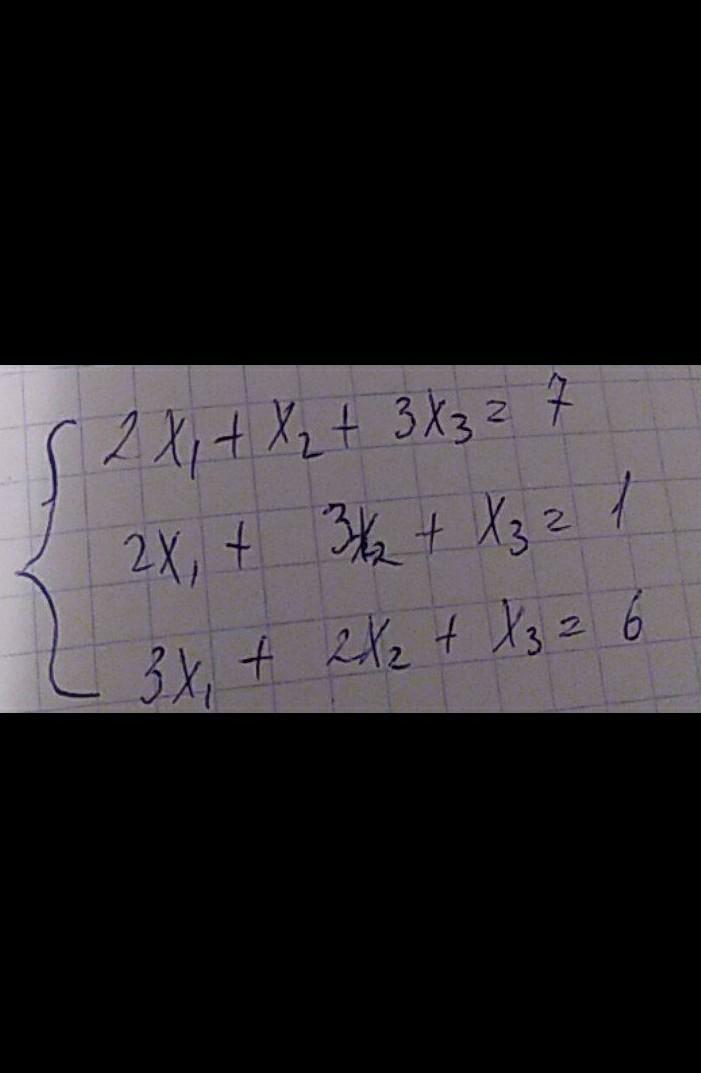 2x₁ + x₂ + 3x₃ = 7
2x₁ + 3x₂ + x₃ = 1
3x₁ + 2x₂ + x₃ = 6